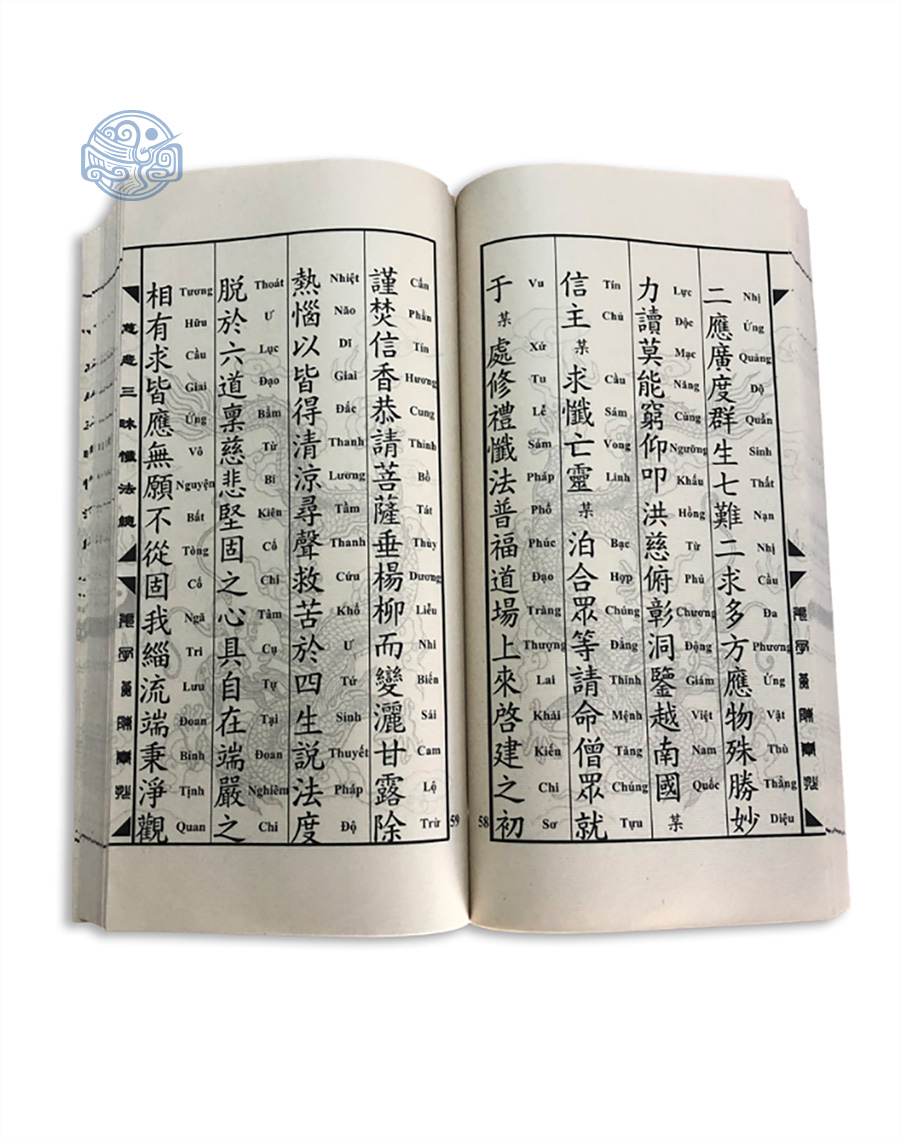 二應廣度群生七難二求多方應物殊勝妙
Nhị Ứng Quảng Độ Quần Sinh Thất Nạn Nhị Cầu Đa Phương Ứng Vật Thù Thắng Diệu
力讀莫能窮仰叩洪慈俯彰洞鑒越南國某
Lực Độc Mạc Năng Cùng Ngưỡng Khấu Hồng Từ Phủ Chương Động Giám Việt Nam Quốc
信主某求懺亡靈某泊合眾等請命僧眾就
Tín Chủ Cầu Sám Vong Linh Bạc Hợp Chúng Đẳng Thỉnh Mệnh Tăng Chúng Tựu
于某處修禮懺法普福道場上來啓建之初
Vu Xứ Tu Lễ Sám Pháp Phổ Phúc Đạo Tràng Thượng Lai Khải Kiến Chi Sơ
58
謹焚信香恭請菩薩垂楊柳而變灑甘露除
Cẩn Phần Tín Hương Cung Thỉnh Bồ Tát Thùy Dương Liễu Nhi Biến Sái Cam Lộ Trừ
熱惱以皆得清涼尋聲救苦於四生説法度
Nhiệt Não Dĩ Giai Đắc Thanh Lương Tầm Thanh Cứu Khổ Ư Tứ Sinh Thuyết Pháp Độ
脱於六道稟慈悲堅固之心具自在端嚴之
Thoát Ư Lục Đạo Bẩm Từ Bi Kiên Cố Chi Tâm Cụ Tự Tại Đoan Nghiêm Chi
相有求皆應無願不從固我緇流端秉淨觀
Tương Hữu Cầu Giai Ứng Vô Nguyện Bất Tòng Cố Ngã Tri Lưu Đoan Bỉnh Tịnh Quan
59
慈悲三昧懺法